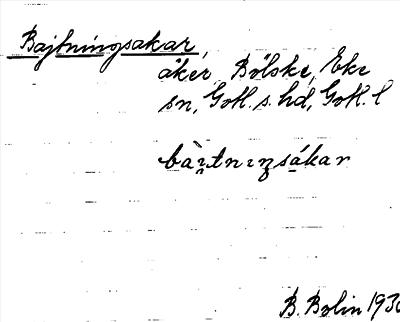 Bajtningsakar,
åker, Bölske, Eke
sn, Gotl. s. hd, Gotl. l
bàı̯tnıŋsákar
B. Bolin 193